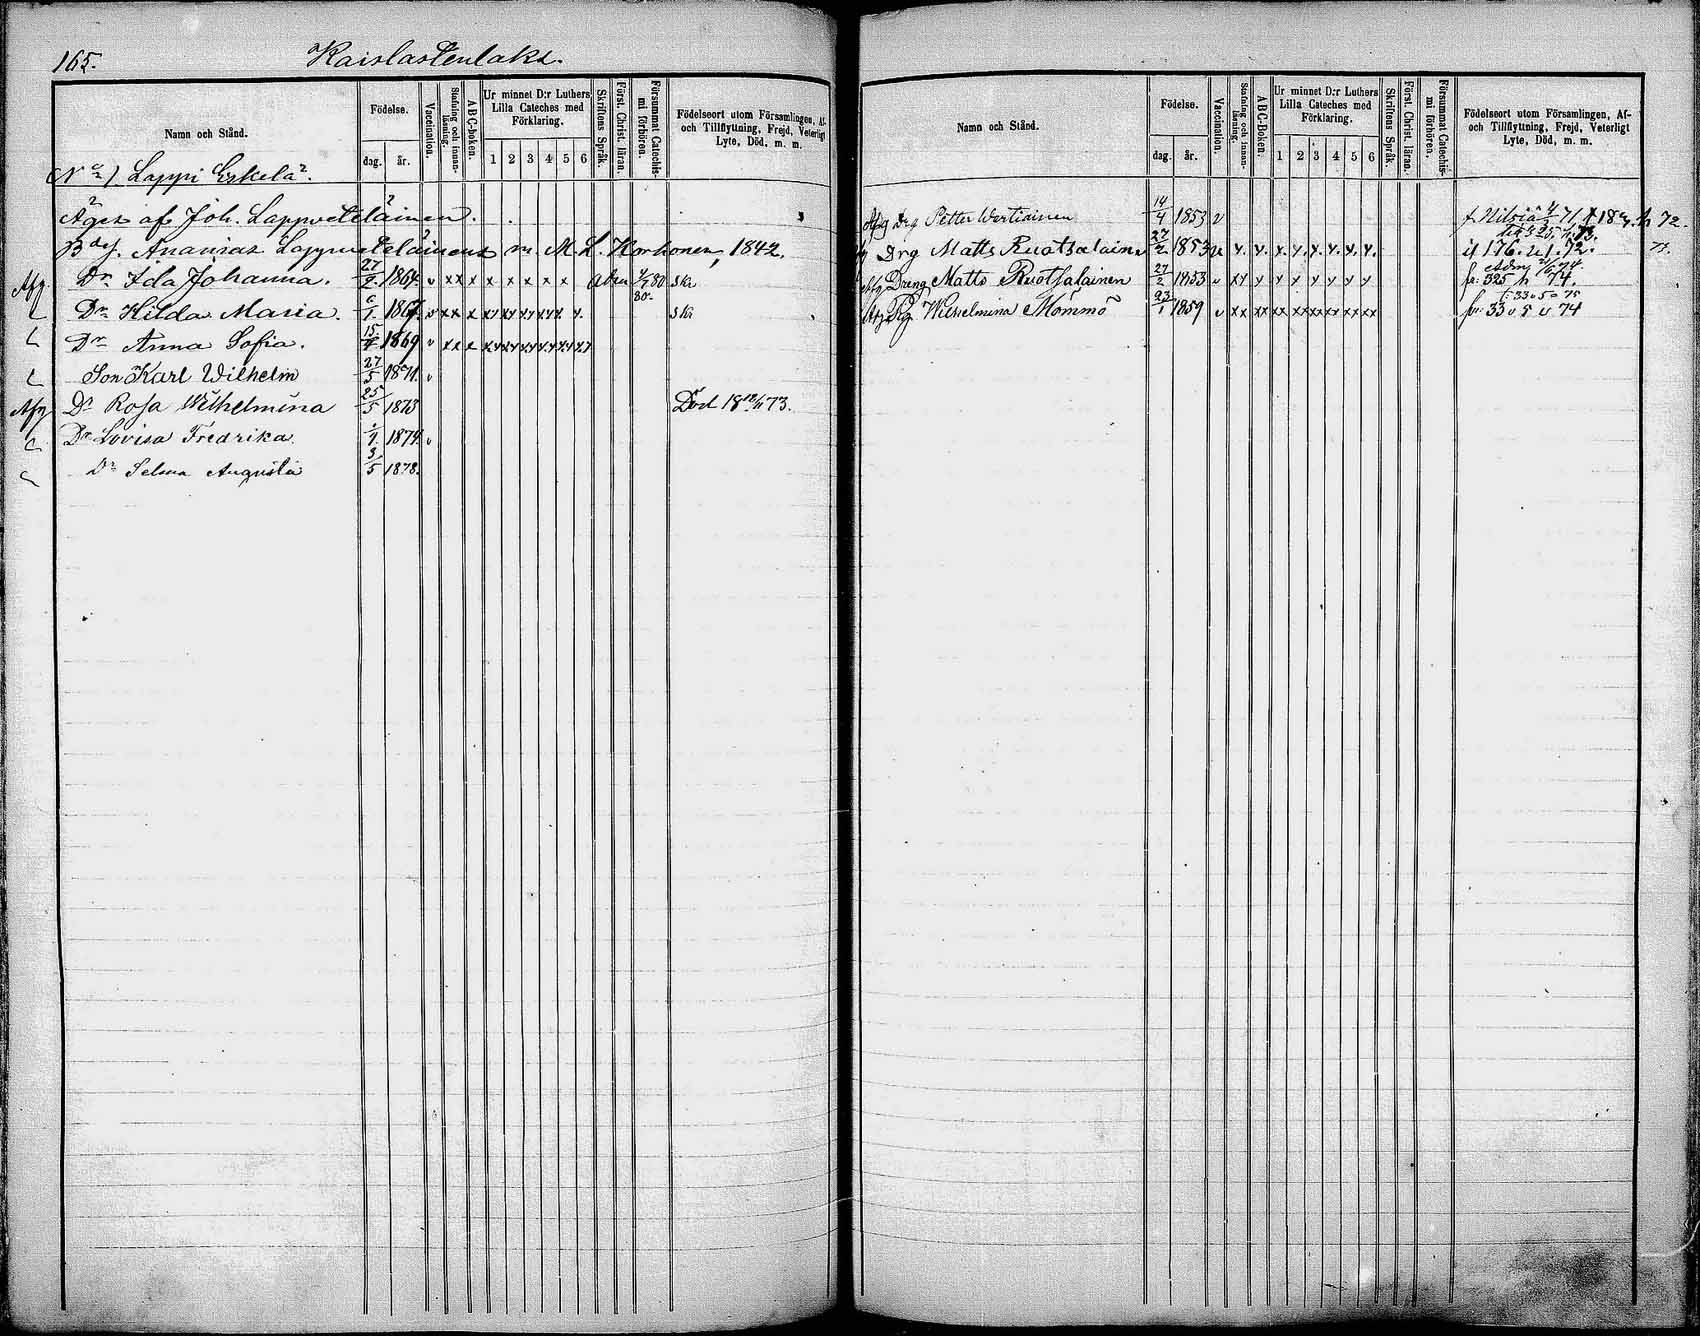 165.
Kaislastenlaks.
Namn och Stånd.
Födelse.
dag.
år.
Vaccination.
Stafning och innan-läsning.
ABC-boken.
Ur minnet D:r Luthers
Lilla Cateches med
Förklaring.
1 2 3 4 5 6
Skriftens Språk.
Först. Christ. läran.
Försummat Catechis-mi förhören.
Födelseort utom Församlingen, Af-
och Tillflyttning, Frejd, Veterligt
Lyte, Död, m. m.
No 1. Lappi Eskelä.
Äges af Joh. Lappveteläinen.
Ananias Lappveteläinens m. M. L. Korhonen, 1842.
Afg Dr Ida Johanna. 27/2 1864. v xx x x x x x x x 80 ska
Dr Hilda Maria. 6/1. 1867. v xx x xy xy xy xy x y. ska
Dr Anna Sofia. 15/4 1869 v xx x xy xy xy xy xy xy
Son Karl Wilhelm 27/5 1871. v
Afg Dr Rosa Wilhelmina 25/5 1873 Död 18 73.
Dr Lovisa Fredrika. 1874. v
Dr Selma Augusta 3/5 1878.
Namn och Stånd.
Födelse.
dag.
år.
Vaccination.
Stafning och innan-läsning.
ABC-Boken.
Ur minnet D:r Luthers
Lilla Cateches med
Förklaring.
1 2 3 4 5 6
Skriftens Språk.
Först. Christ. läran.
Försummat Catechis-mi förhören.
Födelseort utom Församlingen, Af-
och Tillflyttning, Frejd, Veterligt
Lyte, Död, m. m.
Afg Drg Petter Wertiainen 14/4 1853 v f Nilsiä 71 72.
Drg Matts Ruotsalainen 27/2 1853 v y. y. x. y. y. y. y. y. 176. 72.
Afg Dreng Matts Ruotsalainen 27/2 1853 v xy y y y y y y y fr: 325 h 74.
Afg Pig Wilhelmina Mömmö 23/1 1859 v xx xx xx xx xx xx xx xx fr: 33 v 5 v 74